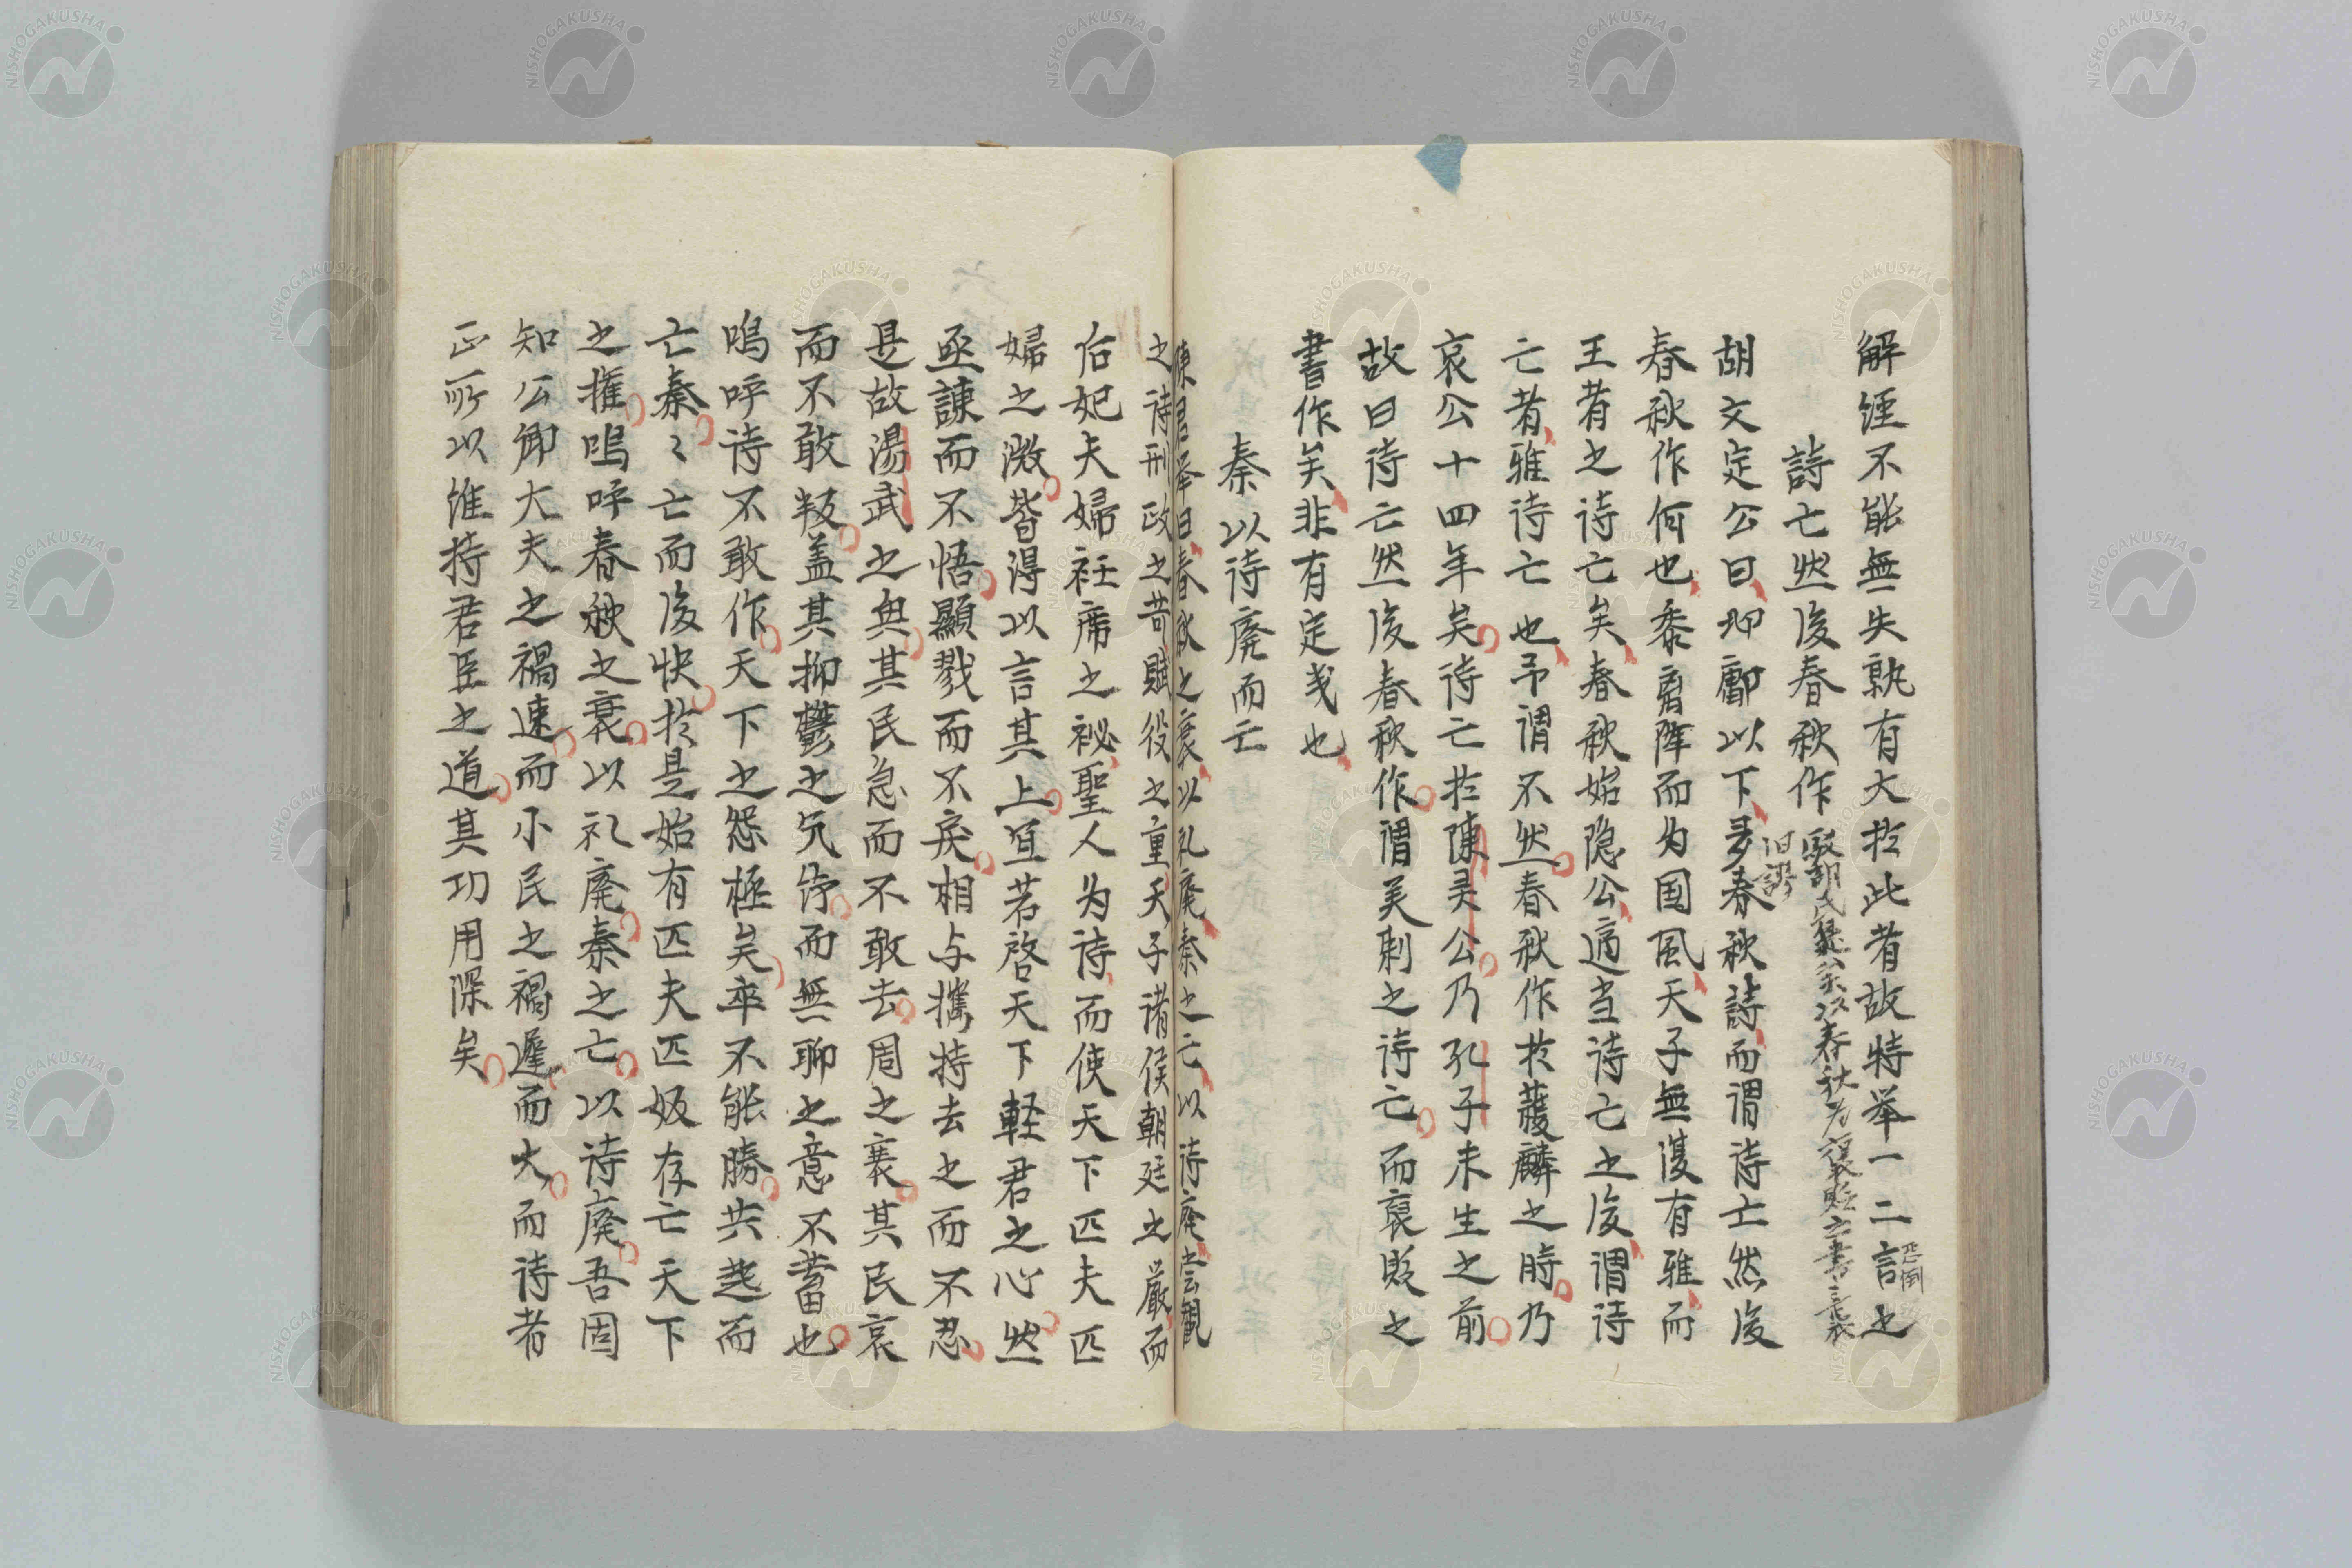 解經不能無失孰有大於此者故特举一二言之
詩亡然後春秋作
胡文定公曰邶鄘以下多春秋詩而谓诗亡然後
春秋作何也黍离降而为国風天子無復有雅而
王者之诗亡矣春秋始隐公適当诗亡之後谓诗
亡者雅诗亡也予谓不然春秋作於獲麟之時乃
哀公十四年矣诗亡於陳灵公乃孔子未生之前
故曰诗亡然後春秋作谓美刺之诗亡而褒貶之
書作矣非有定義也
秦以诗廃而亡
陳君举曰春秋之衰以礼廃秦之亡以诗廃尝観
之诗刑政之苛賦役之重天子诸侯朝廷之嚴而
后妃夫婦衽席之秘聖人为诗而使天下匹夫匹
婦之微皆得以言其上宜若啓天下軽君之心然
亟諫而不悟顯戮而不戾相与攜持去之而不忍
是故湯武之興其民急而不敢去周之衰其民哀
而不敢叛盖其抑鬱之気紓而無聊之意不蓄也
嗚呼诗不敢作天下之怨極矣卒不能勝共起而
亡秦々亡而後快於是始有匹夫匹婦存亡天下
之権嗚呼春秋之衰以礼廃秦之亡以诗廃吾固
知公卿大夫之禍速而小民之禍遲而大而诗者
正所以維持君臣之道其功用深矣